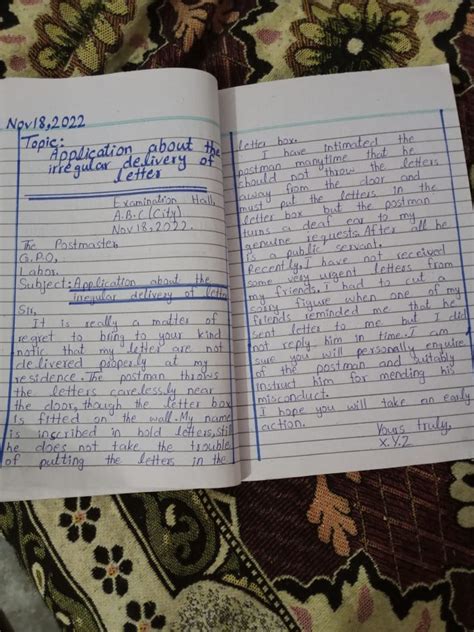 Nov 18, 2022
Topic:
Application about the
irregular delivery of
letter
Examination Hall,
A.B.C (City)
Nov 18, 2022.
The Postmaster
G.P.O,
Lahor.
Subject: Application about the
irregular delivery of letter
Sir,
It is really a matter of
regret to bring to your kind
notic that my letter are not
delivered properly at my
residence. The postman throws
the letters carelessly near
the door, though the letter box
is fitted on the wall. My name
is inscribed in bold letters, still
he does not take the trouble
of putting the letters in the
letter box.
I have intimated the
postman manytime that he
should not throw the letters
away from the door and
must put the letters in the
letter box but the postman
turns a deaf ear to my
genuine requests. After all he
is a public servant.
Recently, I have not received
some very urgent letters from
my friends. I had to cut a
sorry figure when one of my
friends reminded me that he
sent letter to me but I did
not reply him in time. I am
sure you will personally enquire
of the postman and suitably
instruct him for mending his
misconduct.
I hope you will take an early
action.
Yours truly,
X.Y.Z